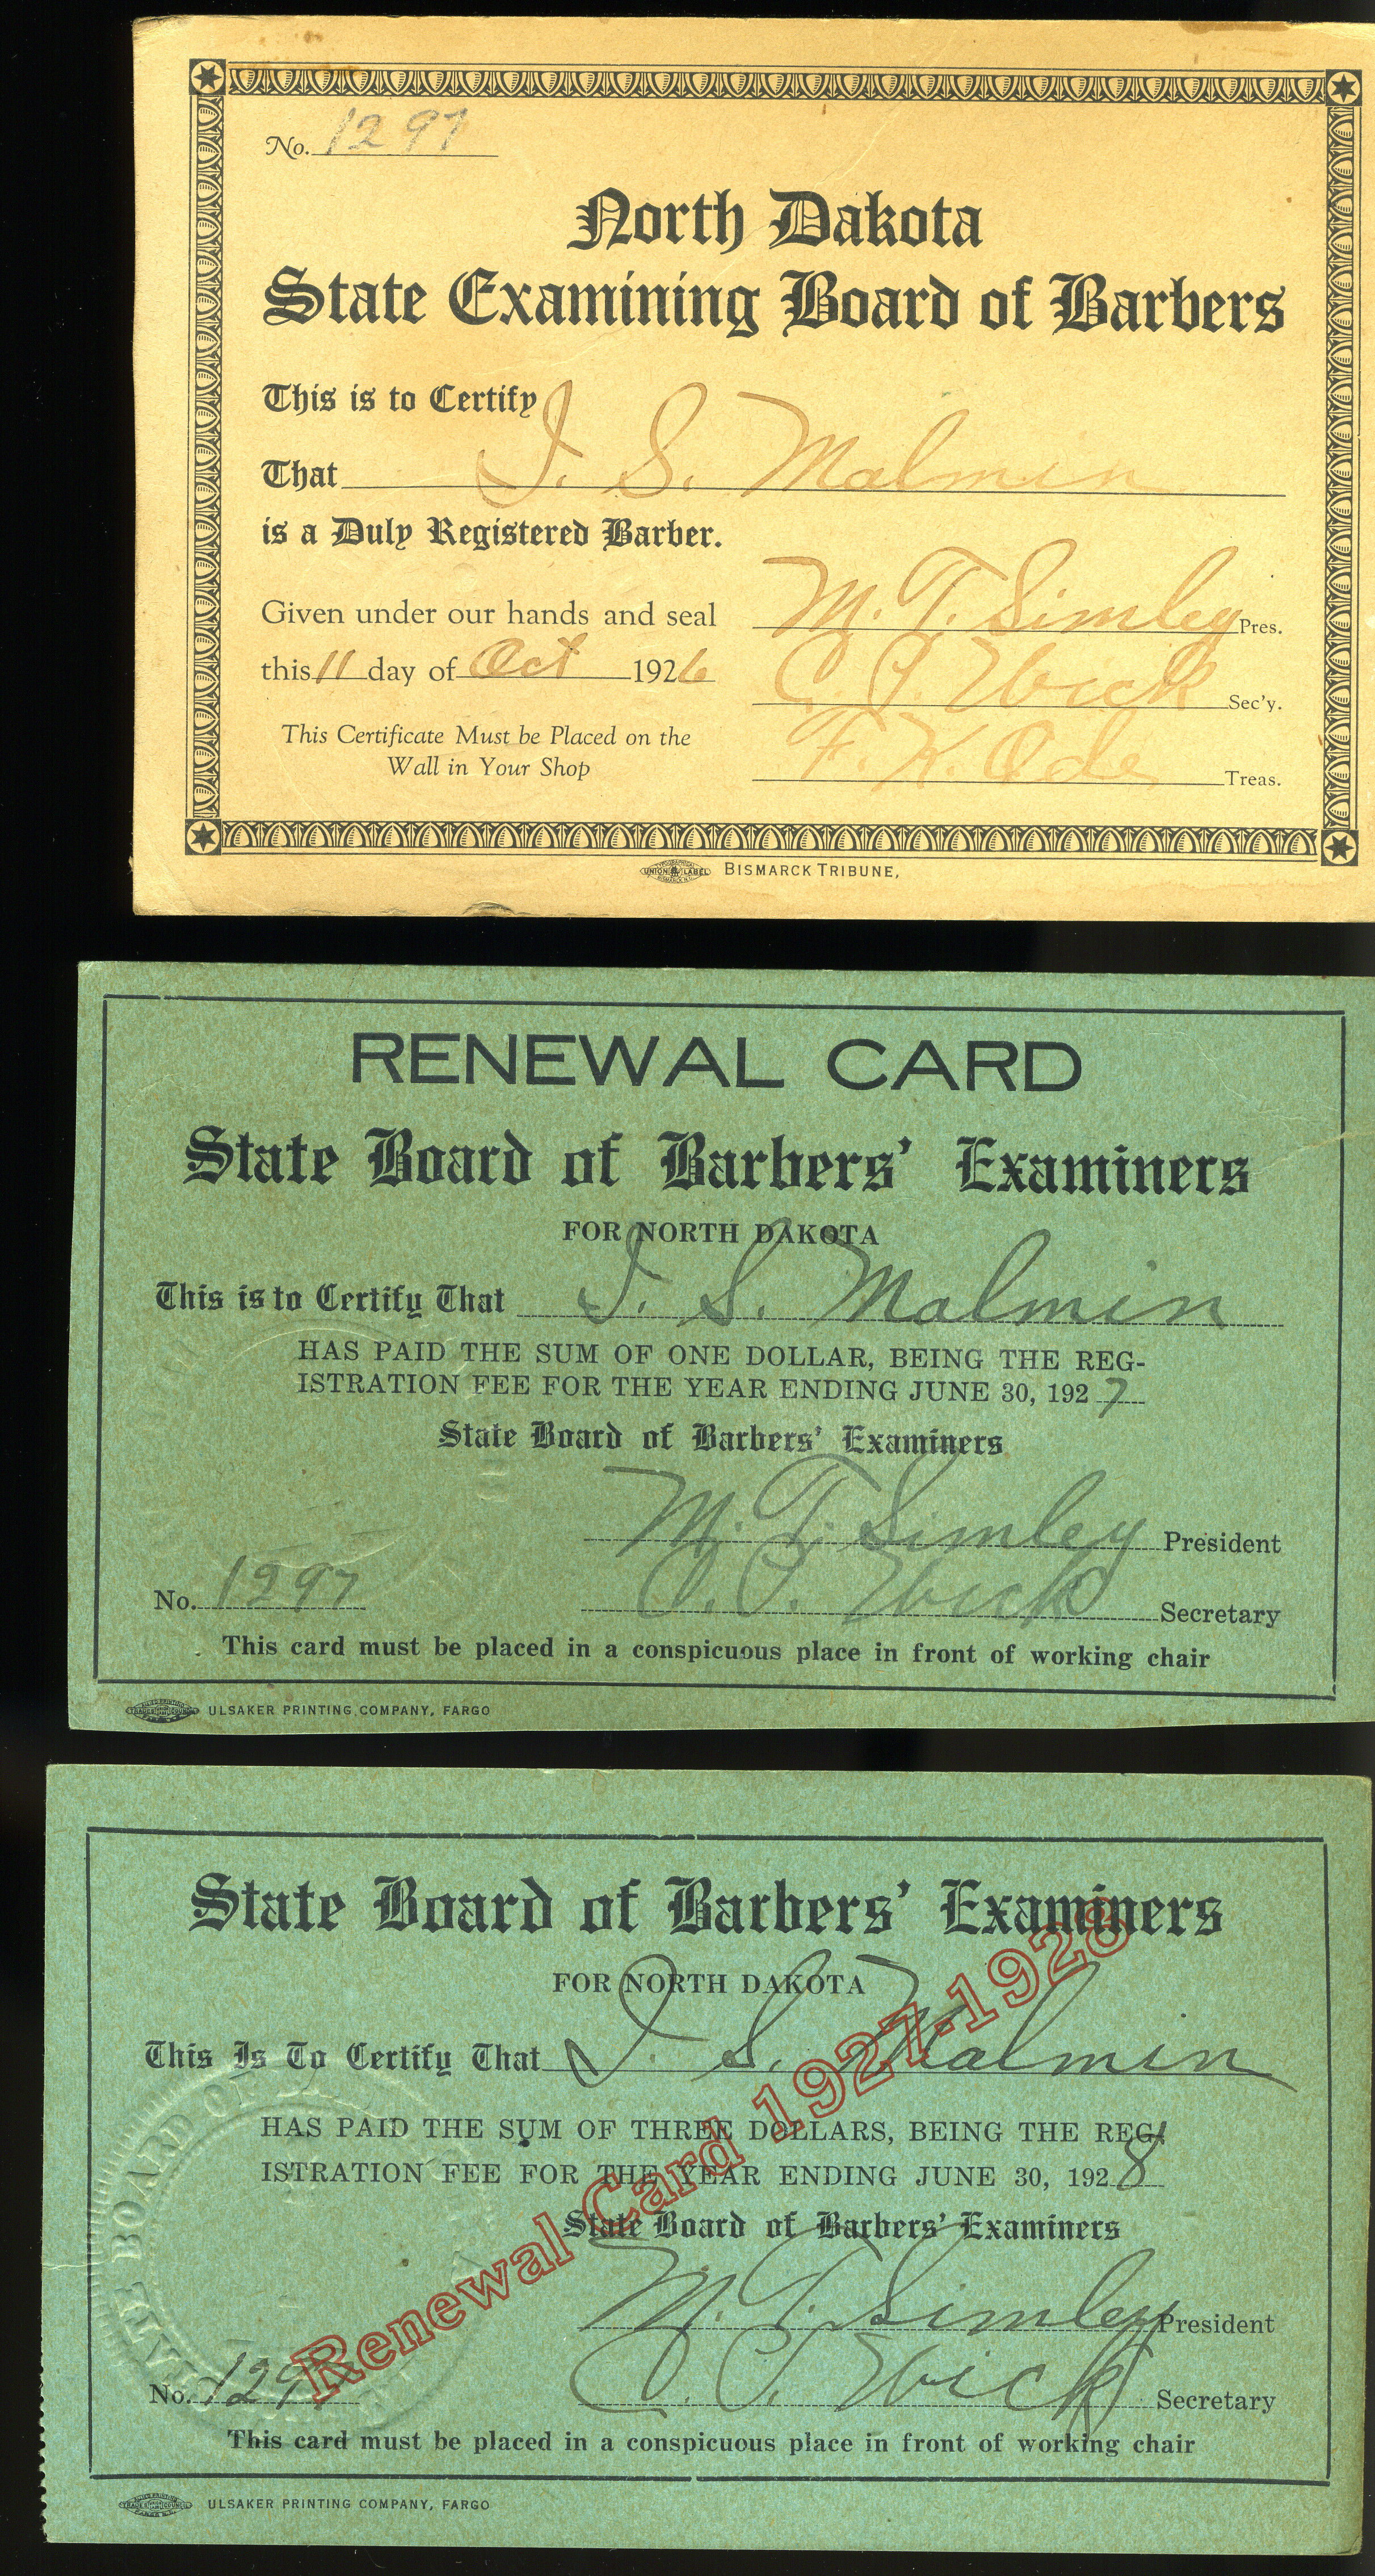 No. 1297
North Dakota
State Examining Board of Barbers
This is to Certify
That I. S. Malmin
is a Duly Registered Barber.
Given under our hands and seal
this 11 day of Oct 1926
This Certificate Must be Placed on the
Wall in Your Shop
M. T. Simley Pres.
C. P. Wick Sec'y.
F. K. Ode Treas.
UNION LABEL
BISMARCK TRIBUNE,
RENEWAL CARD
State Board of Barbers' Examiners
FOR NORTH DAKOTA
This is to Certify That I. S. Malmin
HAS PAID THE SUM OF ONE DOLLAR, BEING THE REG-
ISTRATION FEE FOR THE YEAR ENDING JUNE 30, 1927
State Board of Barbers' Examiners
M. T. Simley President
No. 1297
C. P. Wick Secretary
This card must be placed in a conspicuous place in front of working chair
ULSAKER PRINTING COMPANY, FARGO
State Board of Barbers' Examiners
FOR NORTH DAKOTA
This Is To Certify That I. S. Malmin
HAS PAID THE SUM OF THREE DOLLARS, BEING THE REG-
ISTRATION FEE FOR THE YEAR ENDING JUNE 30, 1928
Renewal Card 1927-1928
State Board of Barbers' Examiners
M. T. Simley President
No. 1297
C. P. Wick Secretary
This card must be placed in a conspicuous place in front of working chair
STATE BOARD OF
ULSAKER PRINTING COMPANY, FARGO